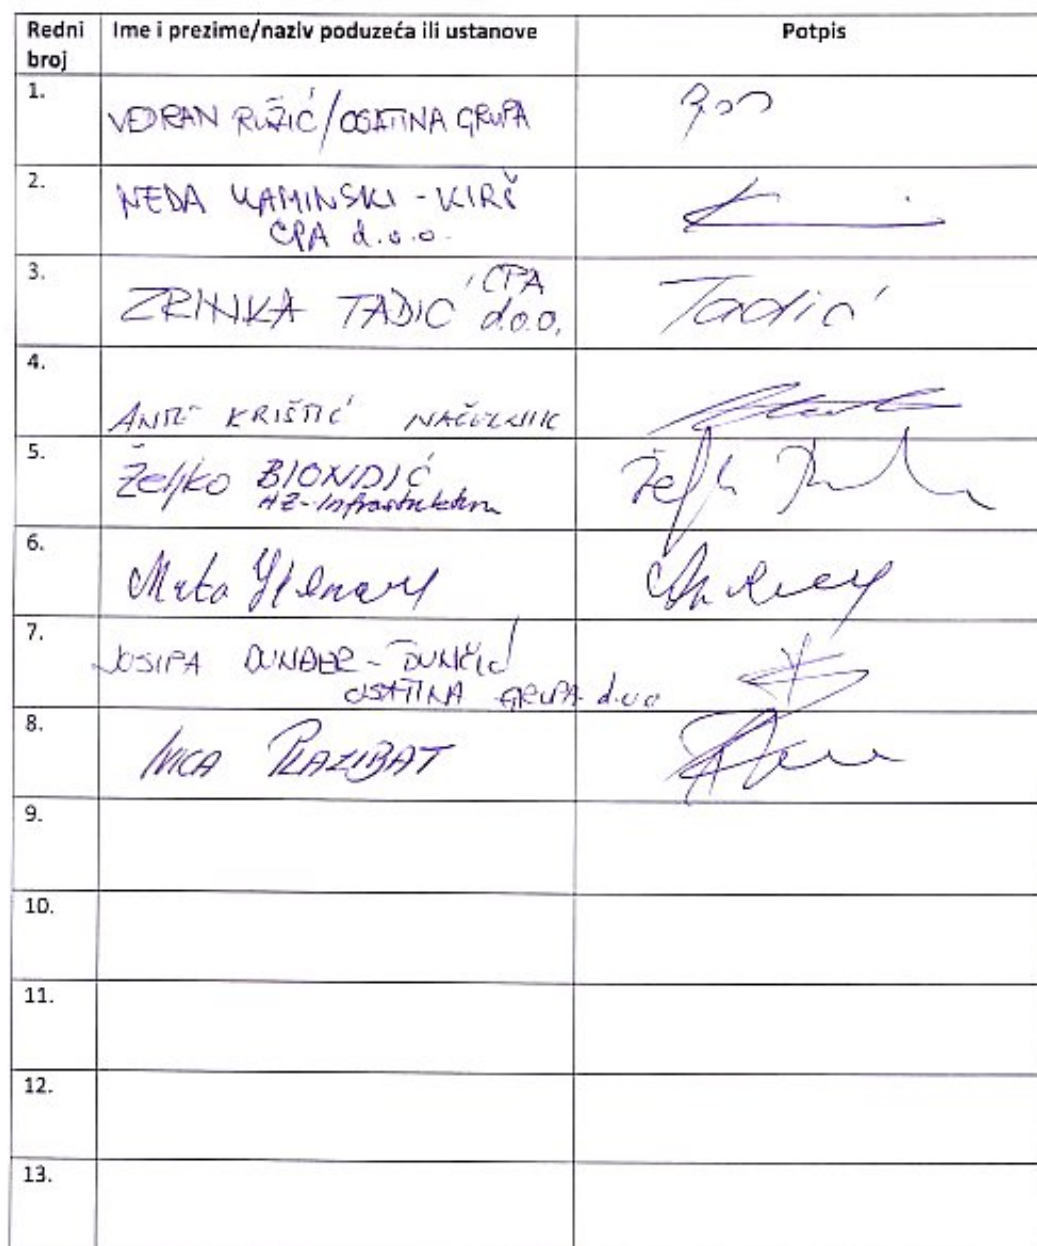 Redni broj Ime i prezime/naziv poduzeća ili ustanove Potpis
1. VEDRAN RUŽIĆ/OSATINA GRUPA
2. NEDA KAMINSKI - KIRŠ
CPA d.o.o.
3. ZRINKA TADIĆ, CPA d.o.o. Tadić
4. ANTE KRIŠTIĆ NAČELNIK
5. Željko BIONDIĆ
HŽ-Infrastruktura
6. Mato
7. JOSIPA DUNĐER - DUNČIĆ
OSATINA GRUPA d.o.o
8. IVICA PLAZIBAT
9.
10.
11.
12.
13.